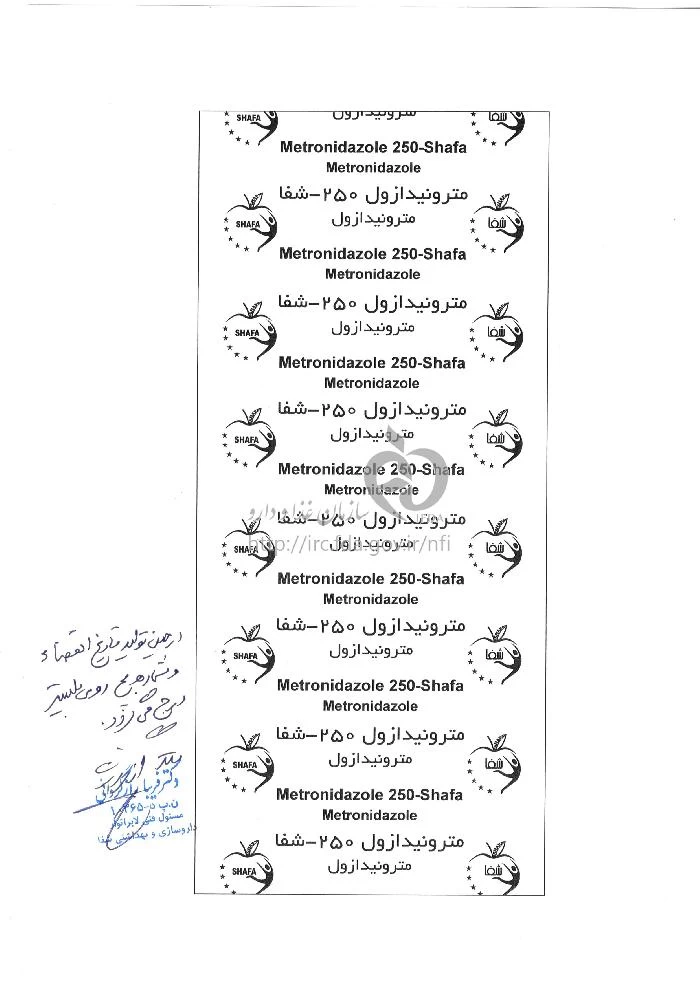 SHAFA مترونیدازول شفا
Metronidazole 250-Shafa
Metronidazole
مترونیدازول ۲۵۰-شفا
SHAFA مترونیدازول شفا
Metronidazole 250-Shafa
Metronidazole
مترونیدازول ۲۵۰-شفا
SHAFA مترونیدازول شفا
Metronidazole 250-Shafa
Metronidazole
مترونیدازول ۲۵۰-شفا
SHAFA مترونیدازول شفا
Metronidazole 250-Shafa
Metronidazole
سازمان غذا و دارو
مترونیدازول ۲۵۰-شفا
SHAFA مترونیدازول شفا
http://irc.fda.gov.ir/nfi
Metronidazole 250-Shafa
Metronidazole
مترونیدازول ۲۵۰-شفا
SHAFA مترونیدازول شفا
Metronidazole 250-Shafa
Metronidazole
مترونیدازول ۲۵۰-شفا
SHAFA مترونیدازول شفا
Metronidazole 250-Shafa
Metronidazole
مترونیدازول ۲۵۰-شفا
SHAFA مترونیدازول شفا
تولید تاریخ انقضاء
روی بلیستر
درج می گردد.
دکتر فریبا
مسئول فنی لابراتوار
داروسازی و بهداشتی شفا